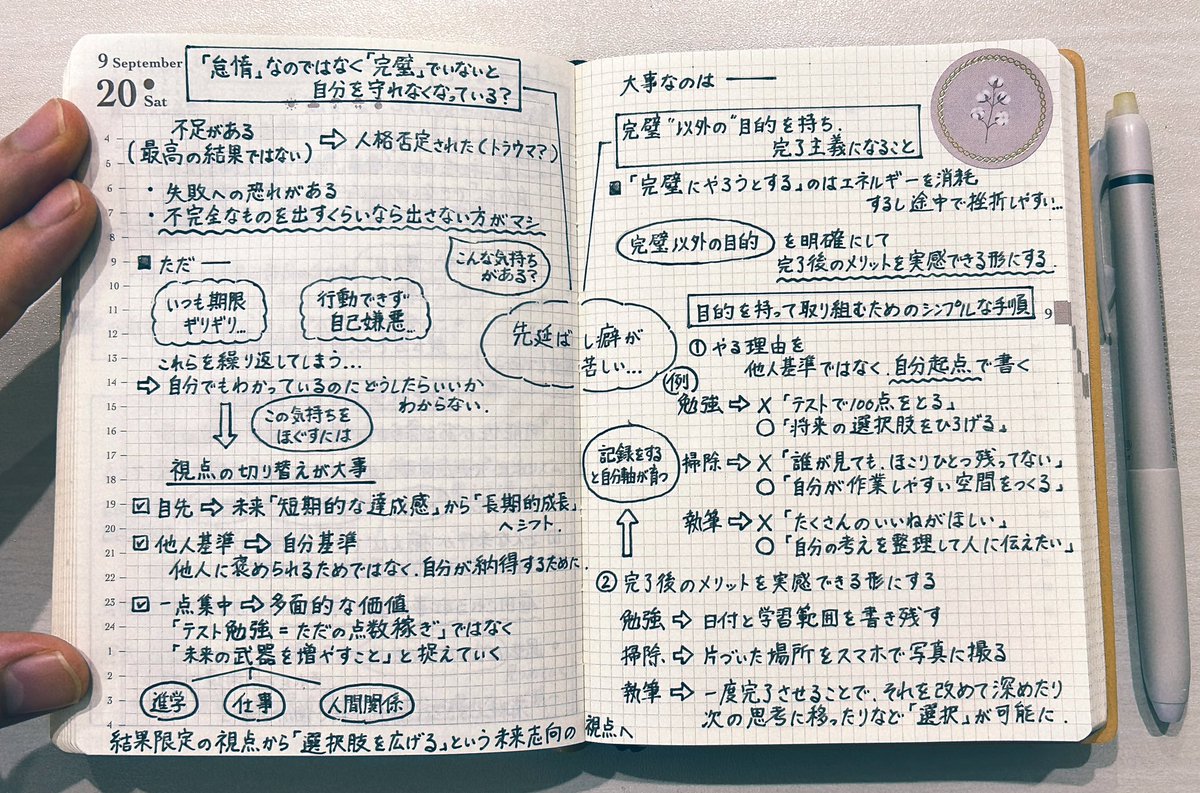 9 September
20 Sat
「怠惰」なのではなく「完璧」でいないと
自分を守れなくなっている?
不足がある
(最高の結果ではない) ⇨ 人格否定された(トラウマ?)
・失敗への恐れがある
・不完全なものを出すくらいなら出さない方がマシ
こんな気持ち
がある?
ただ ──
いつも期限
ギリギリ…
行動できず
自己嫌悪…
先延ばし癖が
苦しい…
これらを繰り返してしまう…
⇨ 自分でもわかっているのにどうしたらいいか
わからない.
この気持ちを
ほぐすには
視点の切り替えが大事
☑ 目先 ⇨ 未来「短期的な達成感」から「長期的成長」
へシフト.
☑ 他人基準 ⇨ 自分基準
他人に褒められるためではなく、自分が納得するために.
☑ 一点集中 ⇨ 多面的な価値
「テスト勉強=ただの点数稼ぎ」ではなく
「未来の武器を増やすこと」と捉えていく
進学 仕事 人間関係
結果限定の視点から「選択肢を広げる」という未来志向の視点へ
4
5
6
7
8
9
10
11
12
13
14
15
16
17
18
19
20
21
22
23
24
1
2
3
4
大事なのは ──
完璧"以外の"目的を持ち、
完了主義になること
「完璧にやろうとする」のはエネルギーを消耗
するし途中で挫折しやすい…
完璧以外の目的 を明確にして
完了後のメリットを実感できる形にする.
目的を持って取り組むためのシンプルな手順
9
① やる理由を
他人基準ではなく、自分起点で書く
(例)
勉強 ⇨ × 「テストで100点をとる」
○ 「将来の選択肢をひろげる」
掃除 ⇨ × 「誰が見ても、ほこりひとつ残ってない」
○ 「自分が作業しやすい空間をつくる」
執筆 ⇨ × 「たくさんのいいねがほしい」
○ 「自分の考えを整理して人に伝えたい」
記録をする
と自分軸が育つ
② 完了後のメリットを実感できる形にする
勉強 ⇨ 日付と学習範囲を書き残す
掃除 ⇨ 片づいた場所をスマホで写真に撮る
執筆 ⇨ 一度完了させることで、それを改めて深めたり
次の思考に移ったりなど「選択」が可能に.